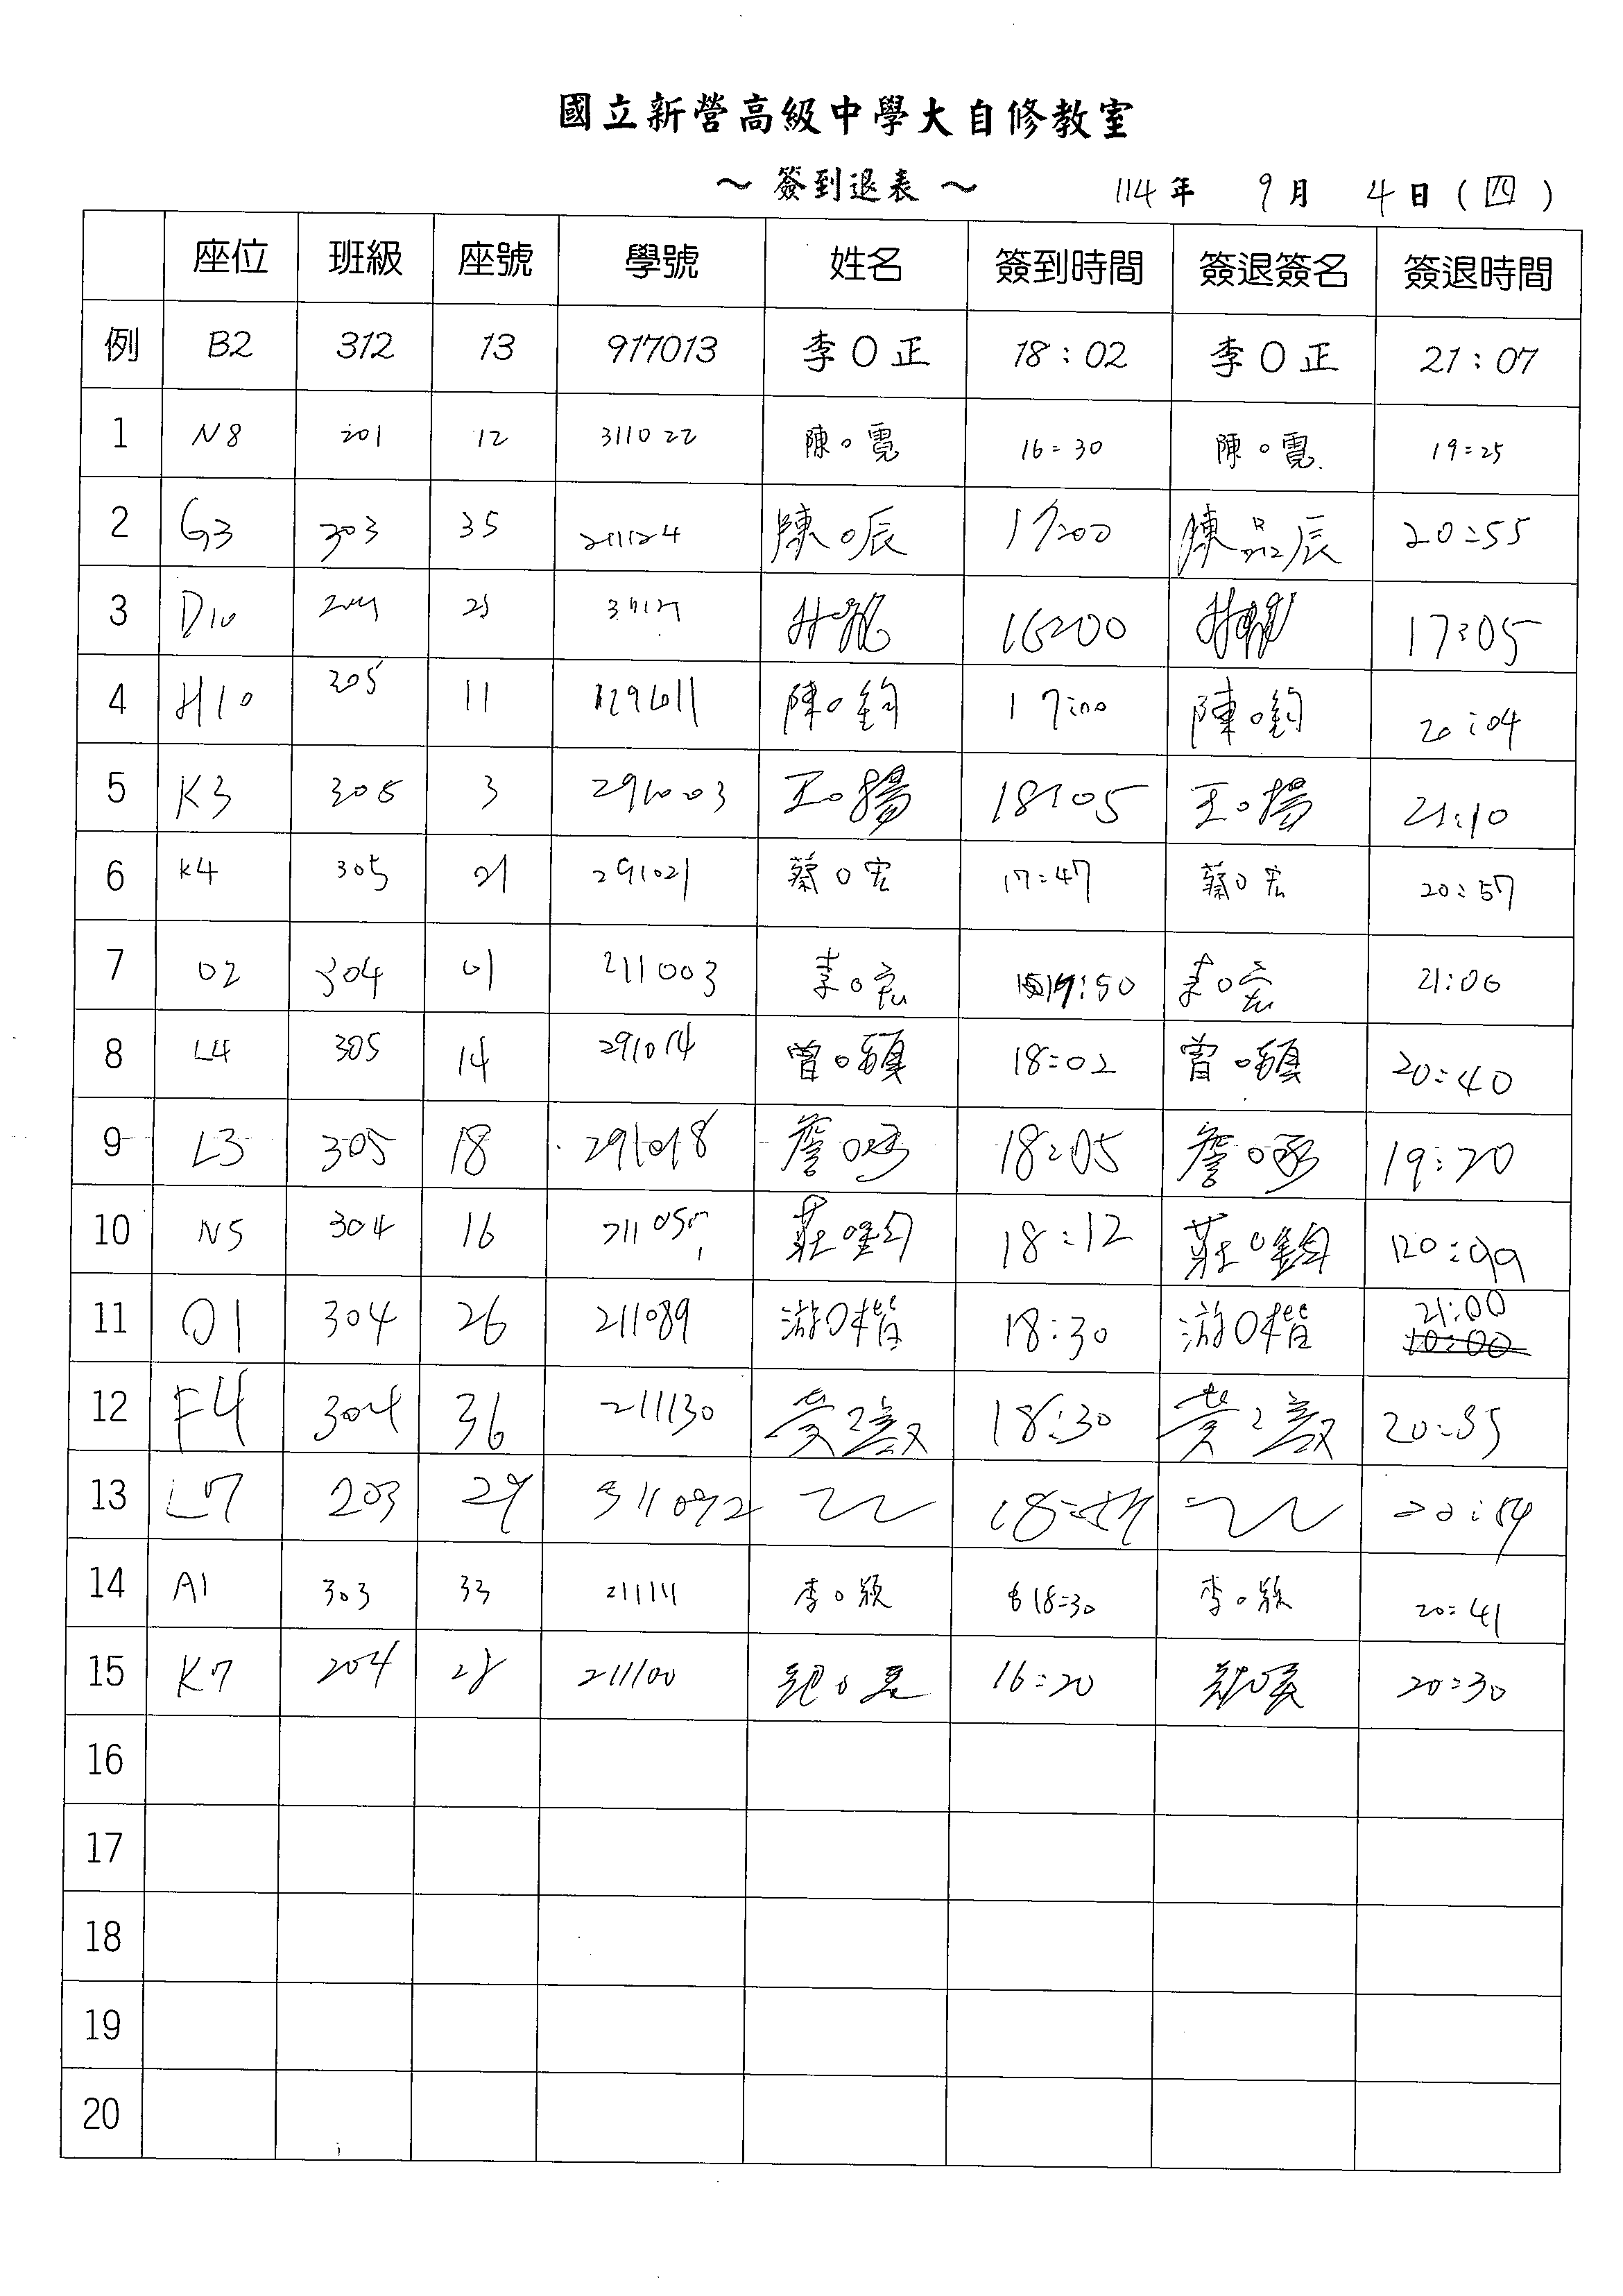 國立新營高級中學大自修教室
~ 簽到退表 ~ 114年 9月 4日(四)
座位 班級 座號 學號 姓名 簽到時間 簽退簽名 簽退時間
例 B2 312 13 917013 李O正 18:02 李O正 21:07
1 N8 201 12 311022 陳O霓 16:30 陳O霓 19:25
2 G3 303 35 211124 陳O辰 17:00 陳品辰 20:55
3 D10 16:00 17:05
4 H10 205 11 陳O鈞 17:00 陳O鈞 20:04
5 K3 305 3 291003 王O揚 18:05 王O揚 21:10
6 K4 305 21 291021 蔡O宏 17:47 蔡O宏 20:57
7 O2 304 01 211003 李O宏 :50 李O宏 21:06
8 L4 305 14 291014 曾O碩 18:02 曾O碩 20:40
9 L3 305 18 291018 詹O承 18:05 詹O承 19:20
10 N5 304 16 莊O鈞 18:12 莊O鈞
11 O1 304 26 211089 游O楷 18:30 游O楷 21:00
10:00
12 F4 304 36 211130 18:30 20:55
13 L7 203 29 311092 18:57 20:59
14 A1 303 33 211111 李O穎 18:30 李O穎 20:41
15 K7 204 28 211100 16:20 20:30
16
17
18
19
20